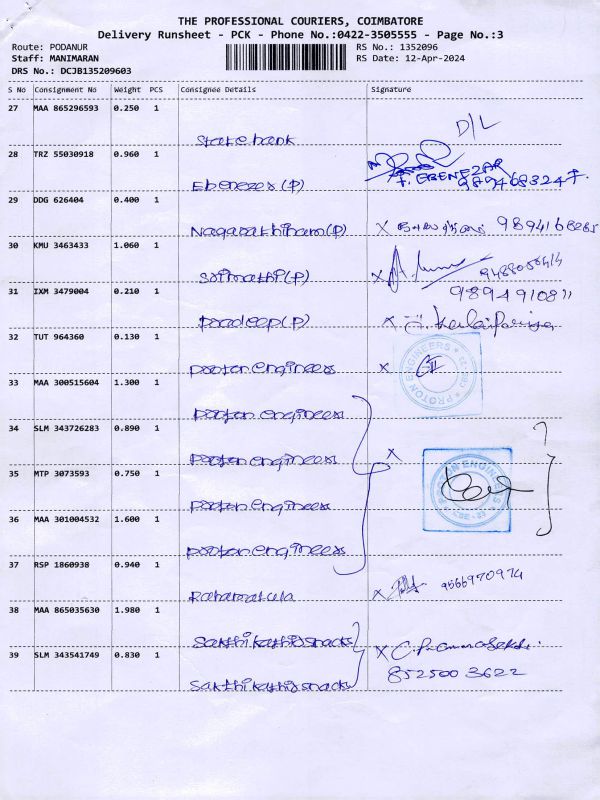 THE PROFESSIONAL COURIERS, COIMBATORE
Delivery Runsheet - PCK - Phone No.:0422-3505555 - Page No.:3
Route: PODANUR RS No.: 1352096
Staff: MANIMARAN RS Date: 12-Apr-2024
DRS No.: DCJB135209603
S No Consignment No Weight PCS Consignee Details Signature
27 MAA 865296593 0.250 1
State bank D/L
28 TRZ 55030918 0.960 1
Ebenezer (P) F. EBENEZAR
9894683247.
29 DDG 626404 0.400 1
(P) X
30 KMU 3463433 1.060 1
Srimathi (P) X
31 IXM 3479004 0.210 1
9894910811
Pradeep (P) X
32 TUT 964360 0.130 1
Proton engineers X PROTON ENGINEERS
33 MAA 300515604 1.300 1
Proton engineers
34 SLM 343726283 0.890 1
Proton engineers X
35 MTP 3073593 0.750 1
Proton engineers PROTON ENGINEERS
36 MAA 301004532 1.600 1
Proton engineers
37 RSP 1860938 0.940 1
X 9566970974
38 MAA 865035630 1.980 1
Sakthi snacks X
39 SLM 343541749 0.830 1
8525003622
Sakthi snacks